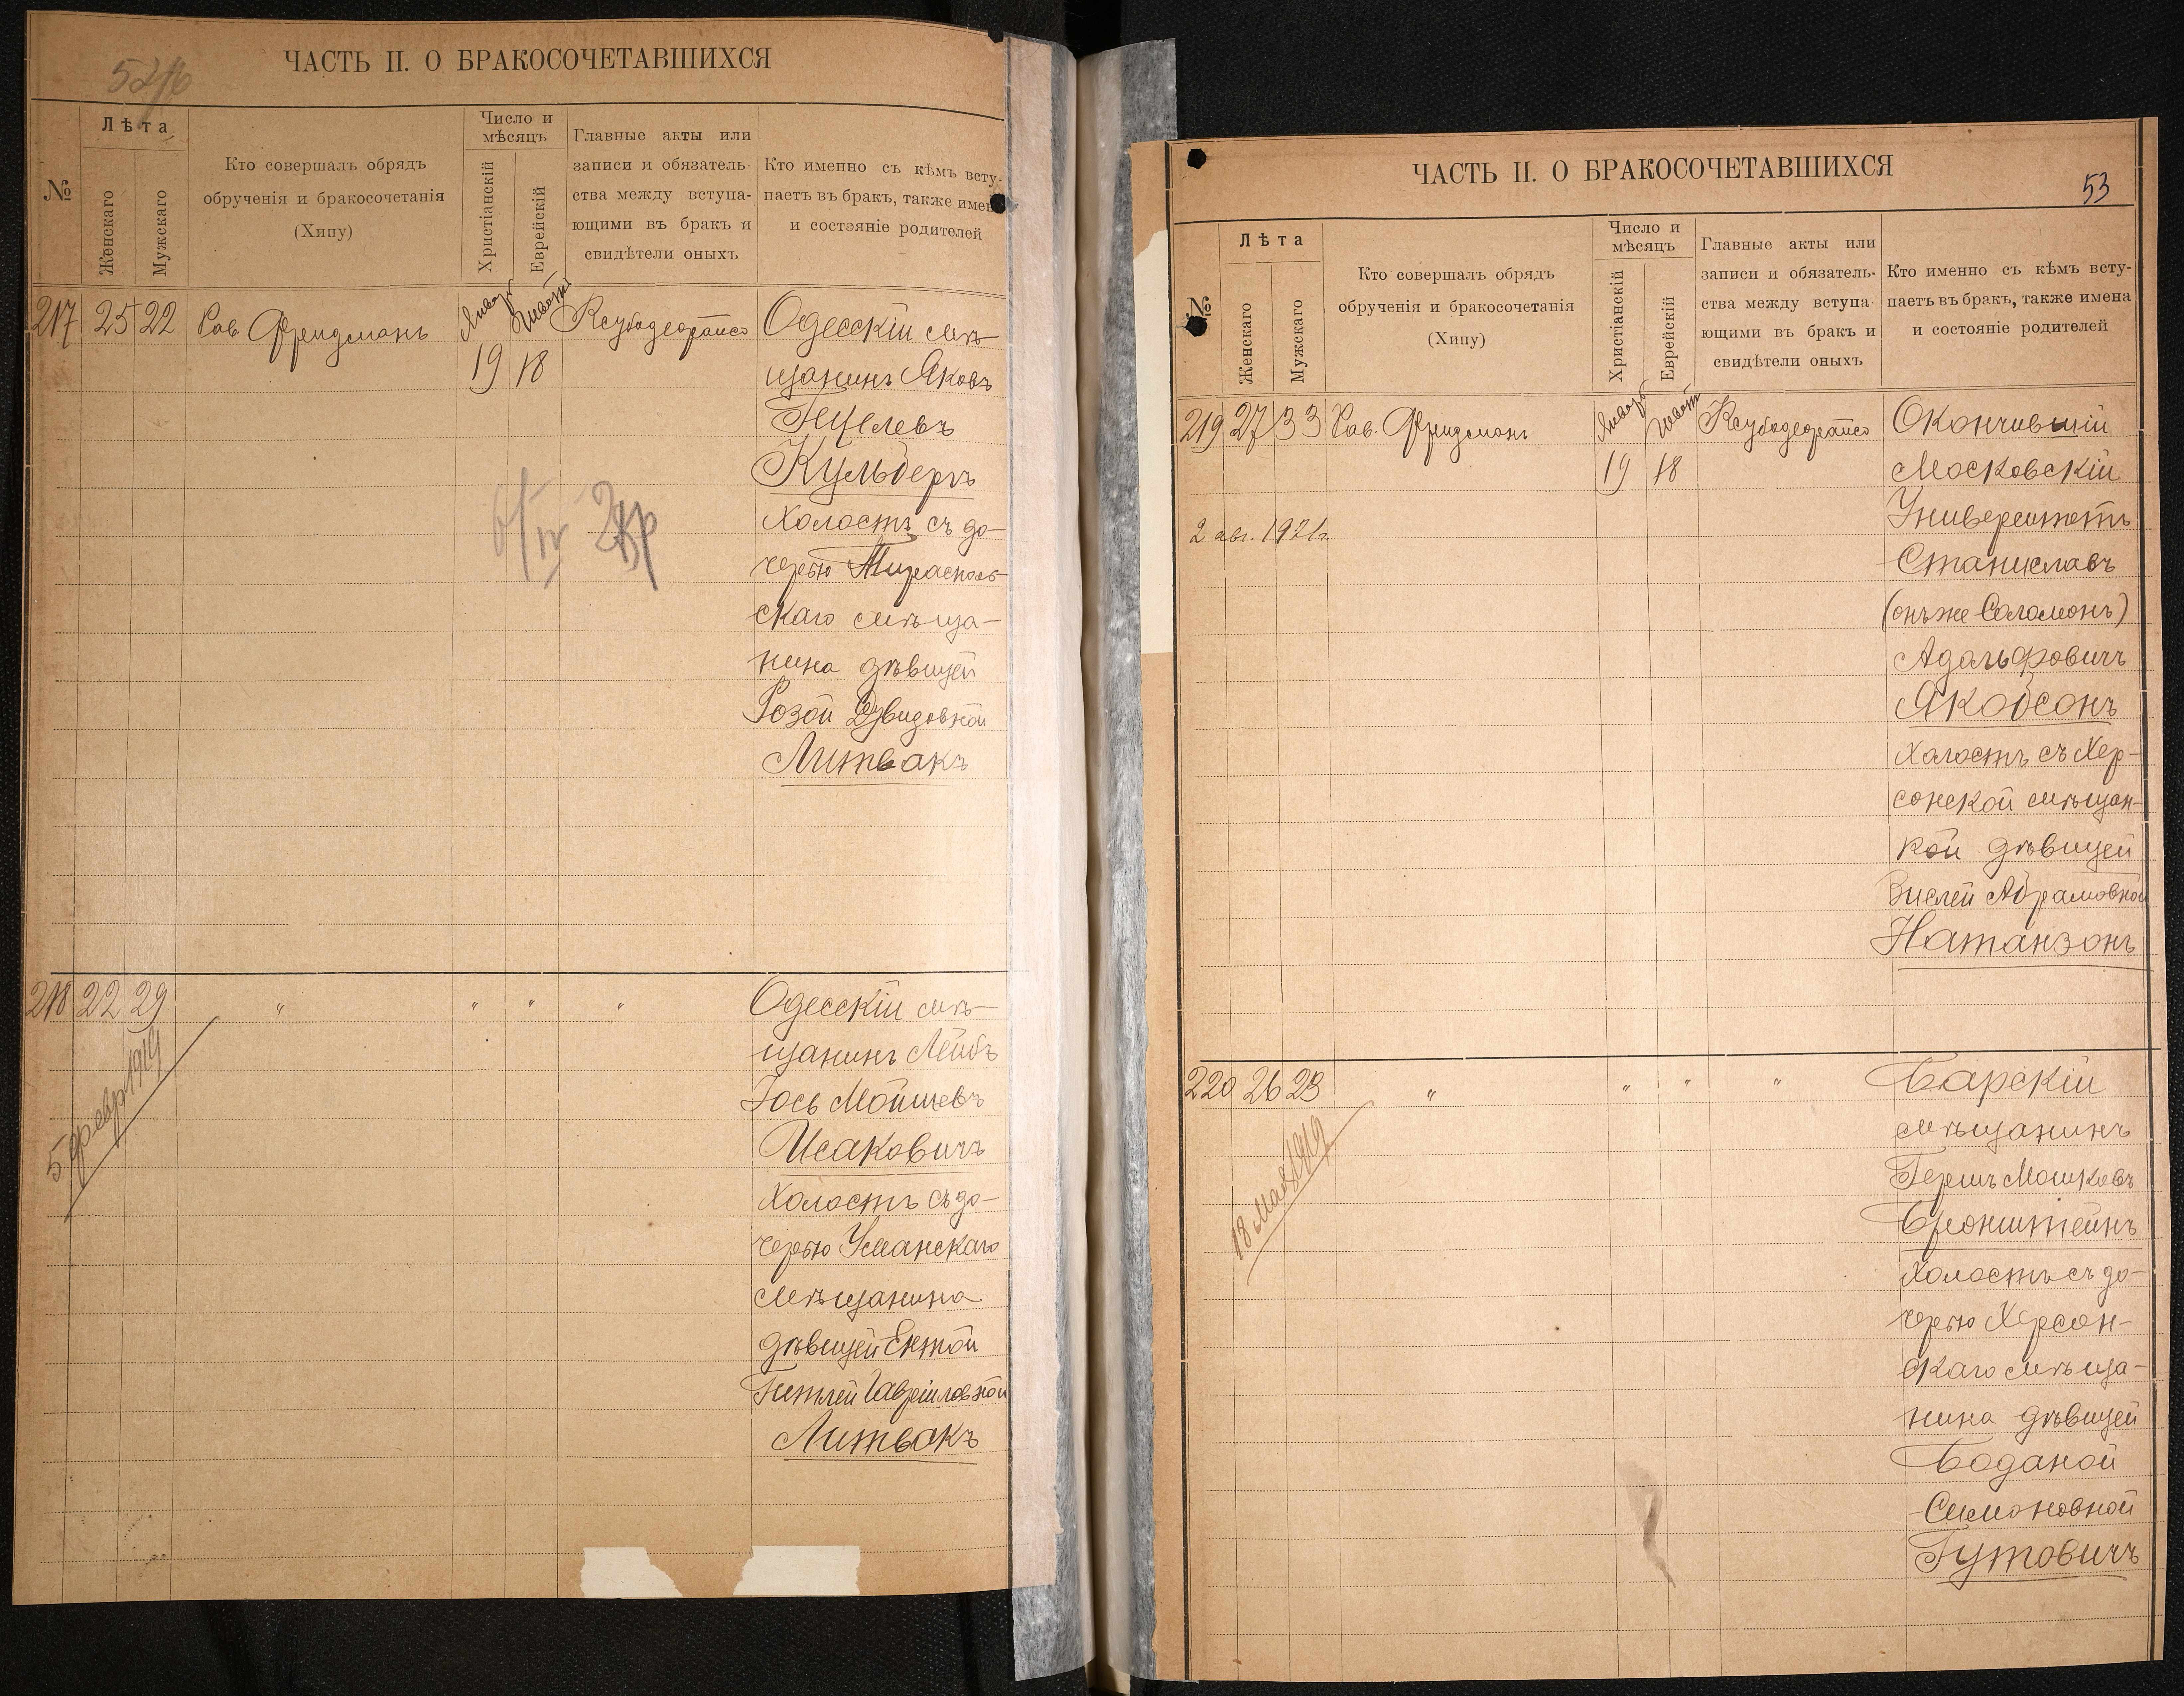 ЧАСТЬ II. О БРАКОСОЧЕТАВШИХСЯ
№
Лѣта
Женскаго
Мужскаго
Кто совершалъ обрядъ
обрученія и бракосочетанія
(Хипу)
Число и
мѣсяцъ
Христіанскій
Еврейскій
Главные акты или
записи и обязатель-
ства между вступа-
ющими въ бракъ и
свидѣтели оныхъ
Кто именно съ кѣмъ всту-
паетъ въ бракъ, также имена
и состэяніе родителей
217 25 22 Рав. Фридманъ
19 18
Одесскій мѣ-
щанинъ Яковъ
Кульберъ
Холостъ съ до-
черью Тирасполь-
скаго мѣща-
нина дѣвицей
Розой Давидовной
Литвакъ
218 22 29 " " " "
5 февр 1919
Одесскій мѣ-
щанинъ Лейбъ
Іось Мойшевъ
Исаковичъ
Холостъ съ до-
черью Уманскаго
мѣщанина
дѣвицей Ентой
Гитлей Гавріиловной
Литвакъ
ЧАСТЬ II. О БРАКОСОЧЕТАВШИХСЯ
53
№
Лѣта
Женскаго
Мужскаго
Кто совершалъ обрядъ
обрученія и бракосочетанія
(Хипу)
Число и
мѣсяцъ
Христіанскій
Еврейскій
Главные акты или
записи и обязатель-
ства между вступа-
ющими въ бракъ и
свидѣтели оныхъ
Кто именно съ кѣмъ всту-
паетъ въ бракъ, также имена
и состояніе родителей
219 27 33 Рав. Фридманъ
19 18
2 авг. 1921г.
Окончившій
Московскій
Университетъ
Станиславъ
(онъ же Соломонъ)
Адольфовичъ
Якобсонъ
Холостъ съ Хер-
сонской мѣщан-
кой дѣвицей
Зислей Абрамовной
Натанзонъ
220 26 23 " " " "
18 мая 1919
Барскій
мѣщанинъ
Гершъ Мошковъ
Бронштейнъ
Холостъ съ до-
черью Херсон-
скаго мѣща-
нина дѣвицей
Боданой
Симоновной
Гутовичъ